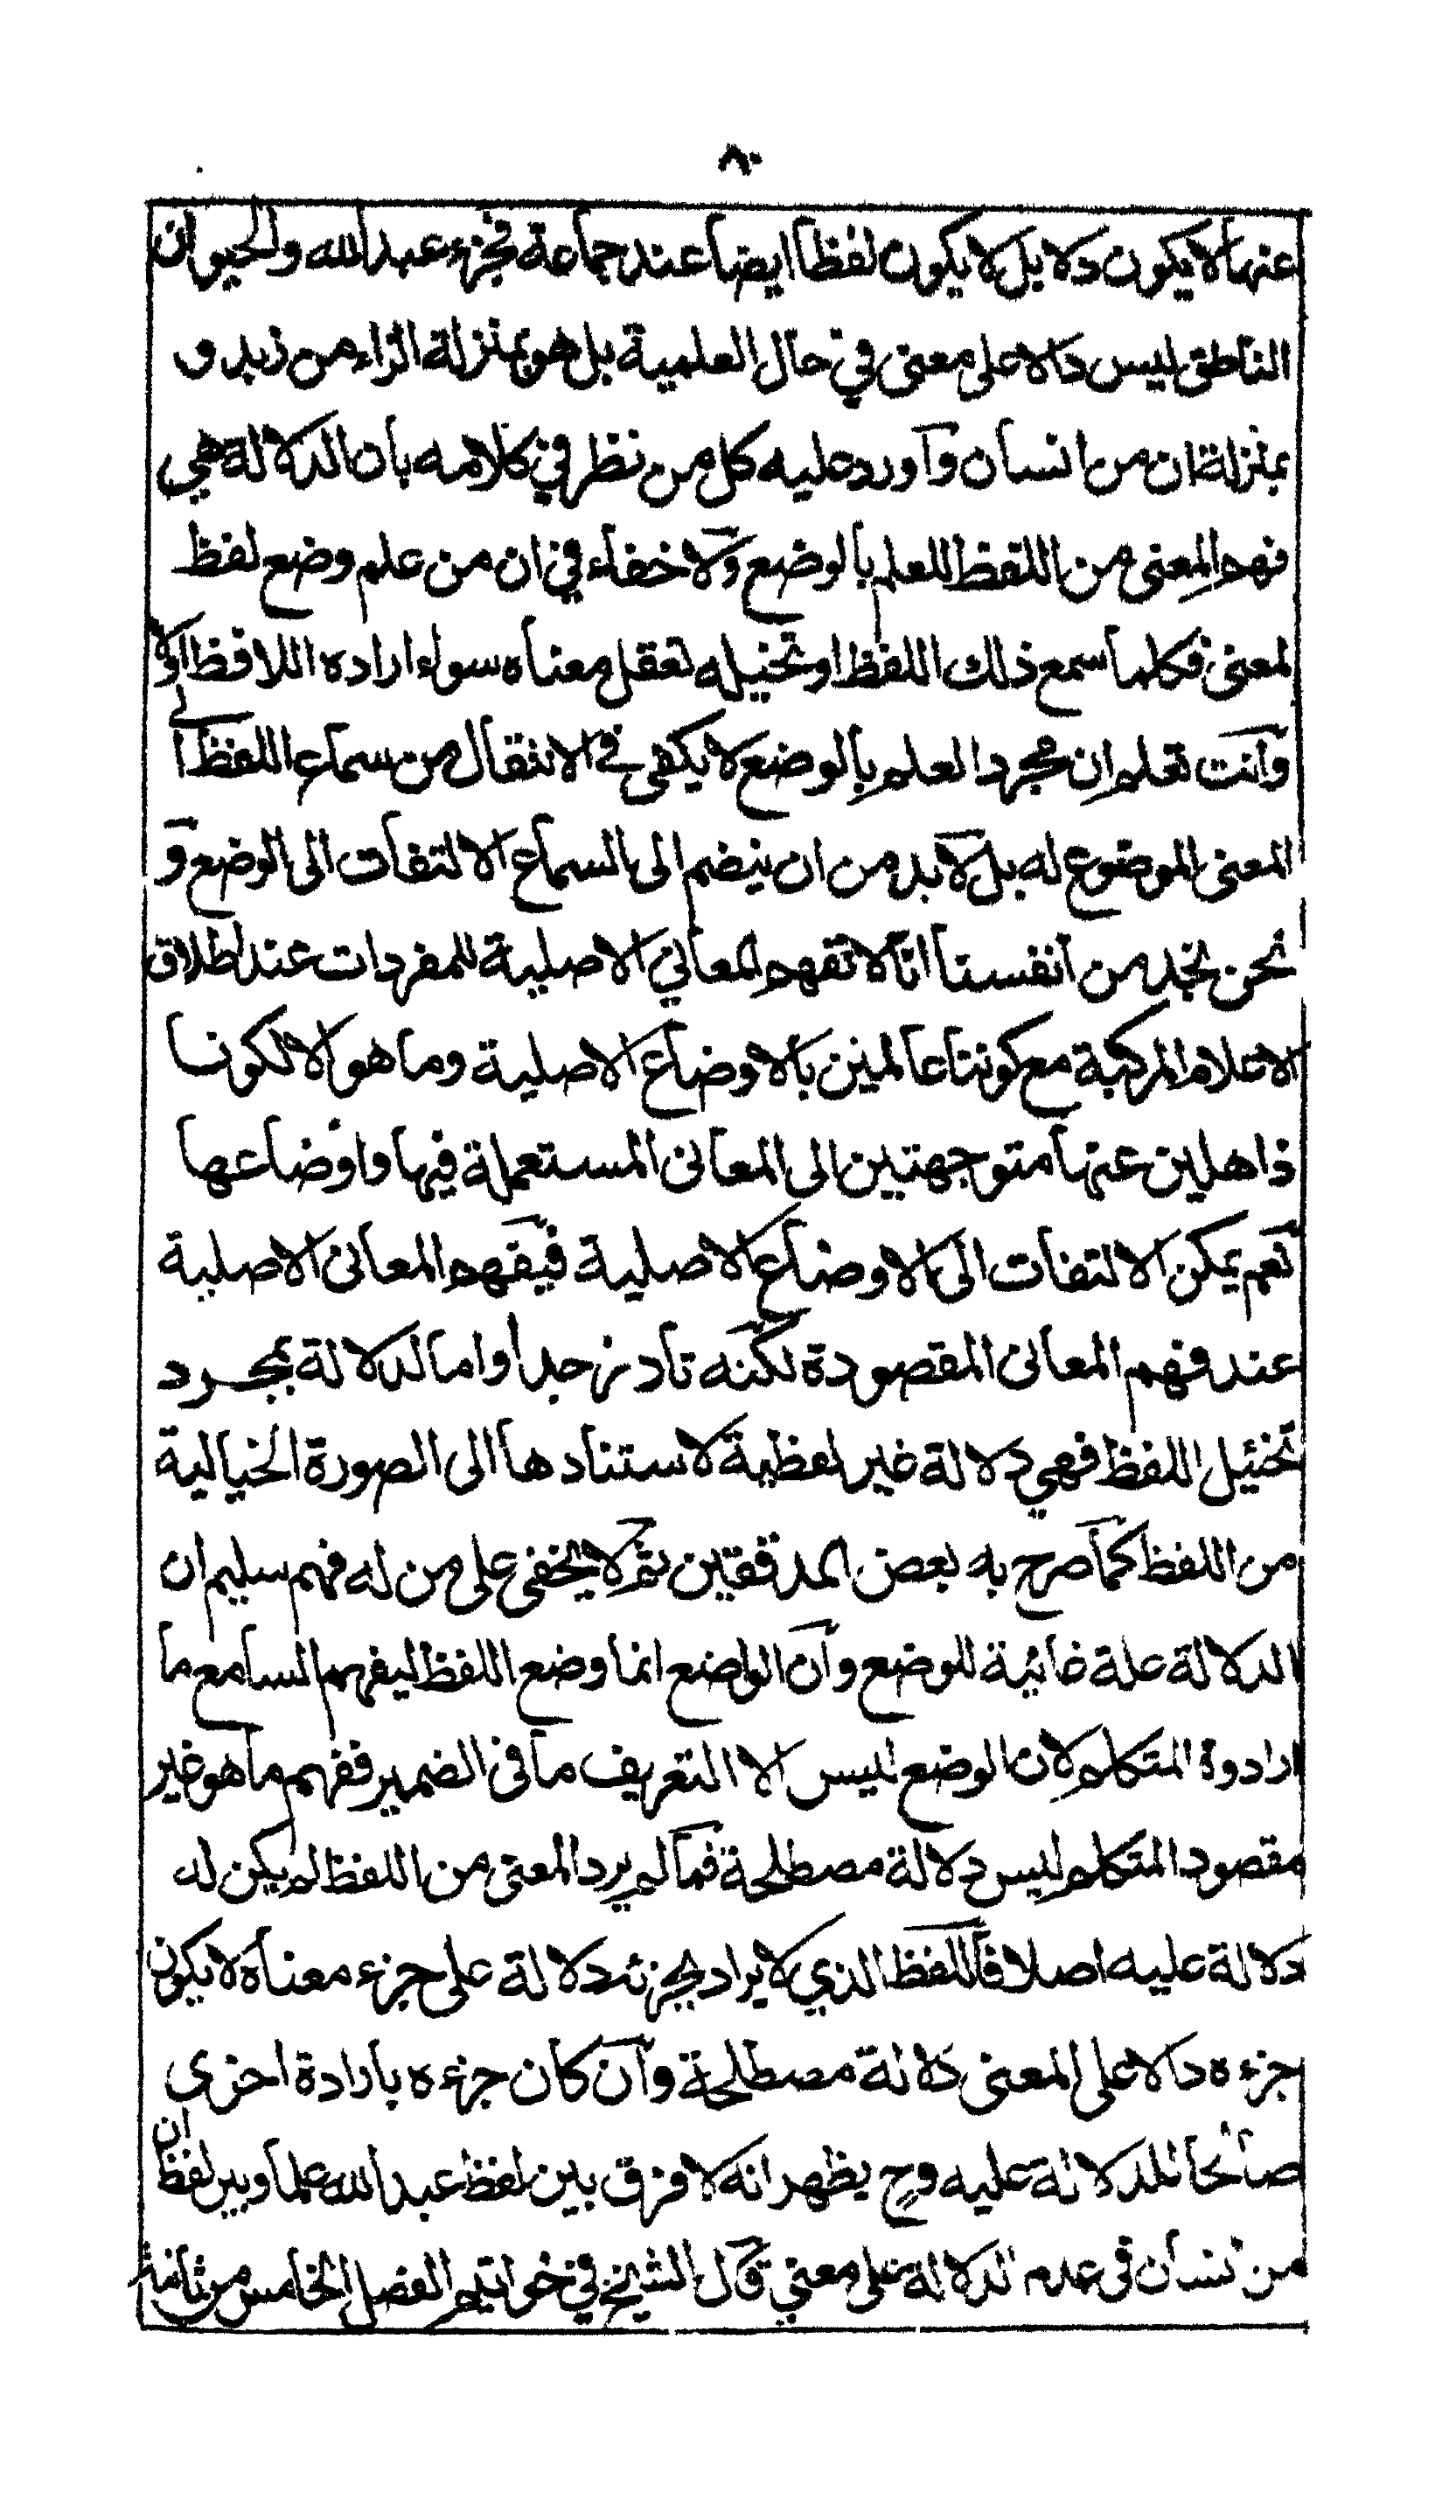 ٨٠
عنها لا يكون دلا بل لا يكون لفظا ايضا عند جماعة فجزء عبد الله والحيوان
الناطق ليس دالا على معنى في حال العلمية بل هو بمنزلة الزاء من زيد و
بمنزلة ان من انسان وآورد عليه كل من نظر في كلامه بان الدلالة هي
فهم المعنى من اللفظ للعلم بالوضع ولا خفاء في ان من علم وضع لفظ
لمعنى فكلما سمع ذلك اللفظ او تخيله تعقل معناه سواء اراده اللافظ اولا
وانت تعلم ان مجرد العلم بالوضع لا يكفى في الانتقال من سماع اللفظ الى
المعنى الموضوع له بل لا بد من ان ينضم الى السماع الالتفات الى الوضع و
نحن نجد من انفسنا انا لا نفهم المعاني الاصلية للمفردات عند اطلاق
الاعلام المركبة مع كوننا عالمين بالاوضاع الاصلية وما هو الا لكوننا
ذاهلين عنها متوجهتين الى المعانى المستعملة فيها واوضاعها
نعم يمكن الالتفات الى الاوضاع الاصلية فيفهم المعانى الاصلية
عند فهم المعانى المقصودة لكنه نادر جدا واما الدلالة بمجرد
تخئيل اللفظ فهي دلالة غير لفظية لاستنادها الى الصورة الخيالية
من اللفظ كما صرح به بعض المدققين ثم لا يخفى على من له فهم سليم ان
الدلالة علة غائية للوضع وان الواضع انما وضع اللفظ ليفهم السامع ما
ارادوة المتكلم لان الوضع ليس الا التعريف ما فى الضمير ففهم ما هو غير
مقصود المتكلم ليس دلالة مصطلحة فما لم يرد المعنى من اللفظ لم يكن له
دلالة عليه اصلا فاللفظ الذي لا يراد بجزئه دلالة على جزء معناه لا يكون
جزءه دالا على المعنى دلالة مصطلحة وان كان جزءه بارادة اخرى
صالحا للدلالة عليه وح يظهر انه لا فرق بين لفظ عبد الله علما وبين لفظ ان
من انسان فى عدم الدلالة على معني قال الشيخ في خواتيم الفصل الخامس من ثانية